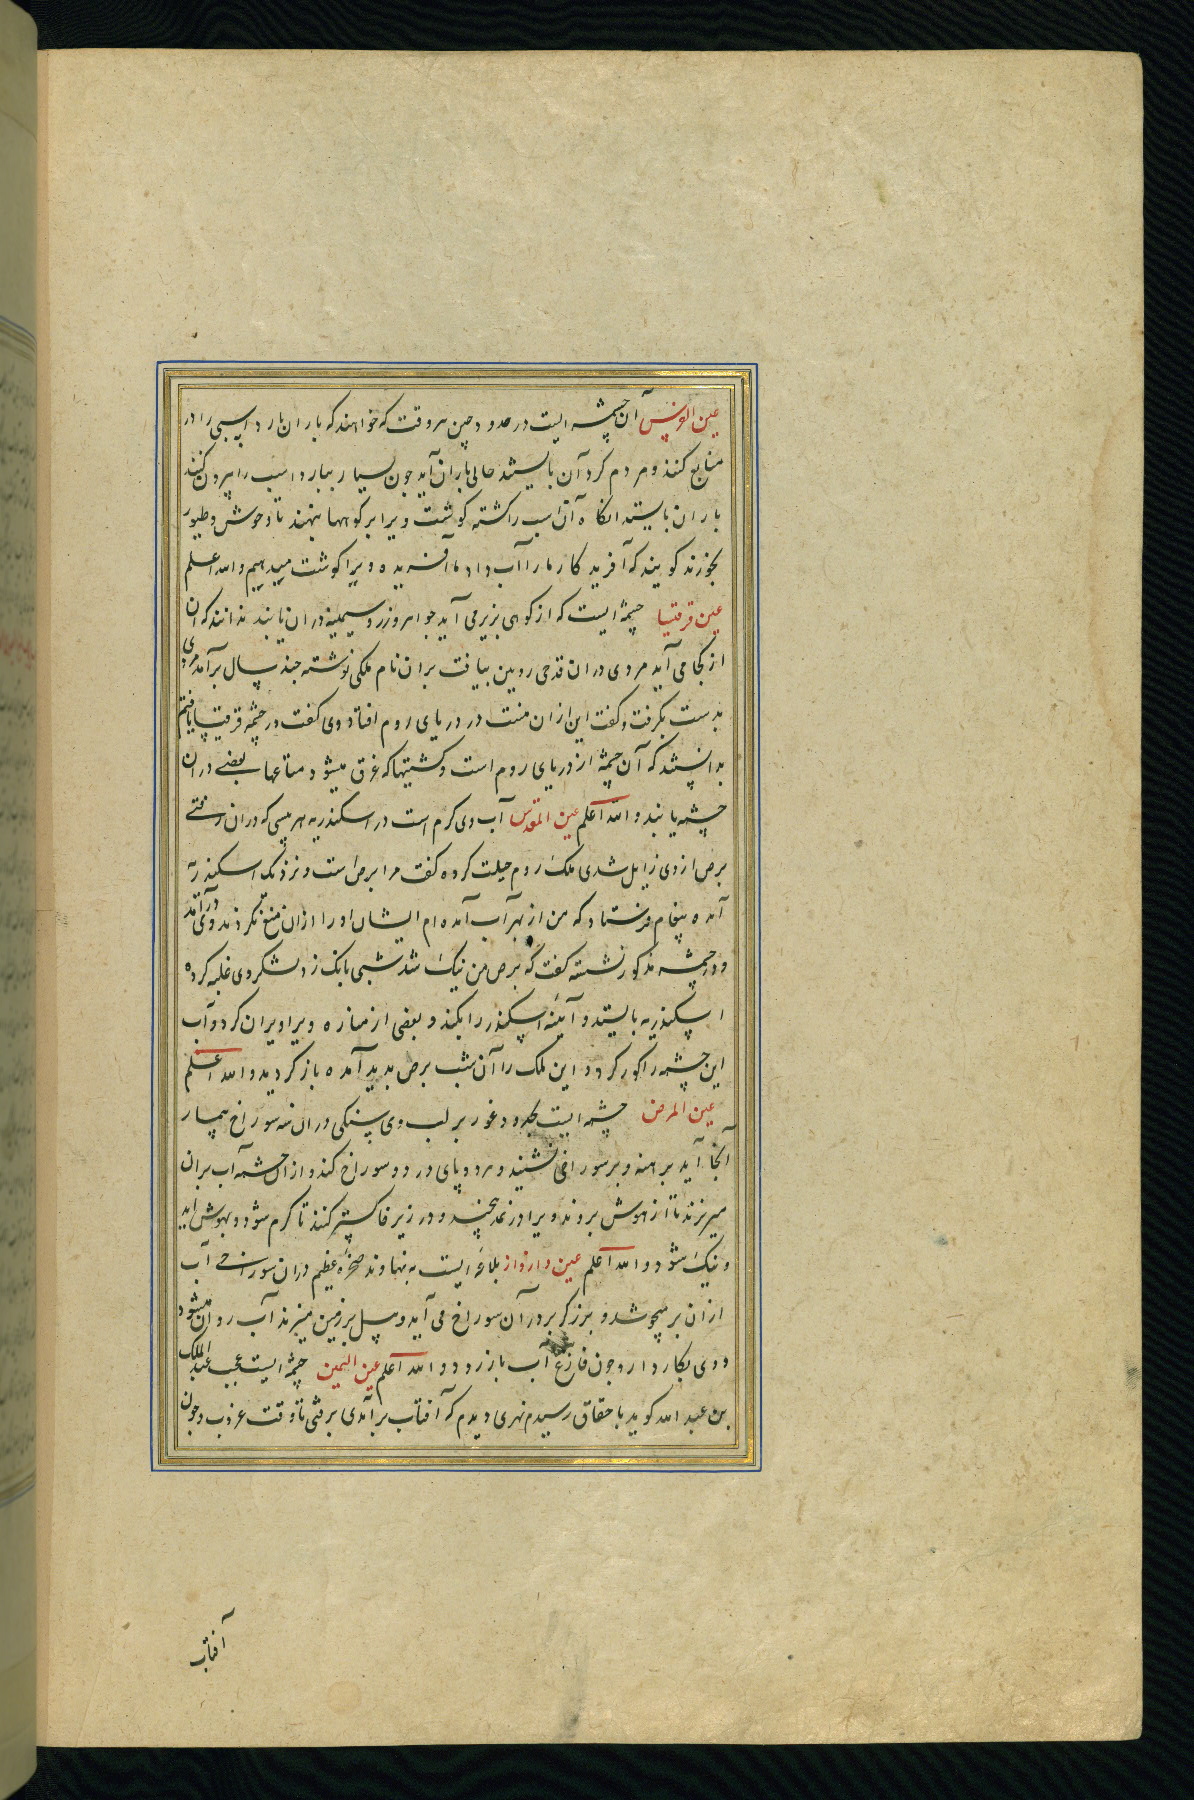 عین الفرس آن چشمه ایست در حدود چین هر وقت که خواهند که باران بارد اسبی را در
منابع کنند و مردم گرد آن بایستند حالی باران آید چون بسیار ببارد اسب را بیرون کنند
باران بایستد آنگاه آن اسب را کشته گوشت ویرا بر کوهها بنهند تا وحوش و طیور
بخورند گویند که آفریدگار ما را آب داد ما آفریده ویرا گوشت میدهیم والله اعلم
عین قرقتیا چشمه ایست که از کوهی بزیر می آید جواهر وزر و سیمینه در آن یابند ندانند که آن
از کجا می آید مردی در ان قدحی رویین بیافت بران نام ملکی نوشته چند سال برآمد مردی
بدست بگرفت و گفت این ازان منست در دریای روم افتاد وی گفت در چشمه قرقتیا یافتم
بدانستند که آن چشمه از دریای روم است و کشتیها که غرق میشود متاعها بعضی دران
چشمه یابند والله اعلم عین المقدس آب وی گرم است در اسکندریه هر پیسی که دران رفتی
برص از وی زایل شدی ملک روم حیلت کرده گفت مرا برص است و نزد ملک اسکندریه
آمده پیغام فرستاد که من از بهر آب آمده ام ایشان اورا ازان منع نکردند وی درآمد
و در چشمه مذکور نشسته گفت که برص من نیک شد شبی بانک زد لشکر وی غلبه کرده
اسکندریه بایستد و آئینه اسکندر را بکند و بعضی از مناره ویرا ویران کرد و آب
این چشمه را کور کرد و این ملک را آن شب برص بدید آمده باز گردید والله اعلم
عین المرض چشمه ایست بحدود غور بر لب وی سنگی در ان نه سوراخ بیمار
آنجا آید برهنه و بر سوراخی نشیند و هر دو پای در دو سوراخ کند و از ان چشمه آب بران
میریزند تا از هوش برود ویرا در نمد پیچند و در زیر خاکستر کنند تا گرم شود و بهوش آید
و نیک شود والله اعلم عین دارواز بلاغه ایست به نهاوند صخره عظیم دران سوراخی آب
ازان بر میجوشد و برزگر بر در آن سوراخ می آید و بیل بر زمین میزند آب روان میشود
و وی بکار دارد چون فارغ آب باز رود والله اعلم عین الیمین چشمه ایست عجب عبد الملک
بن عبد الله گوید باحقاق رسیدم نهری دیدم که آفتاب برآمدی برفتی تا وقت غروب و چون
آفتاب